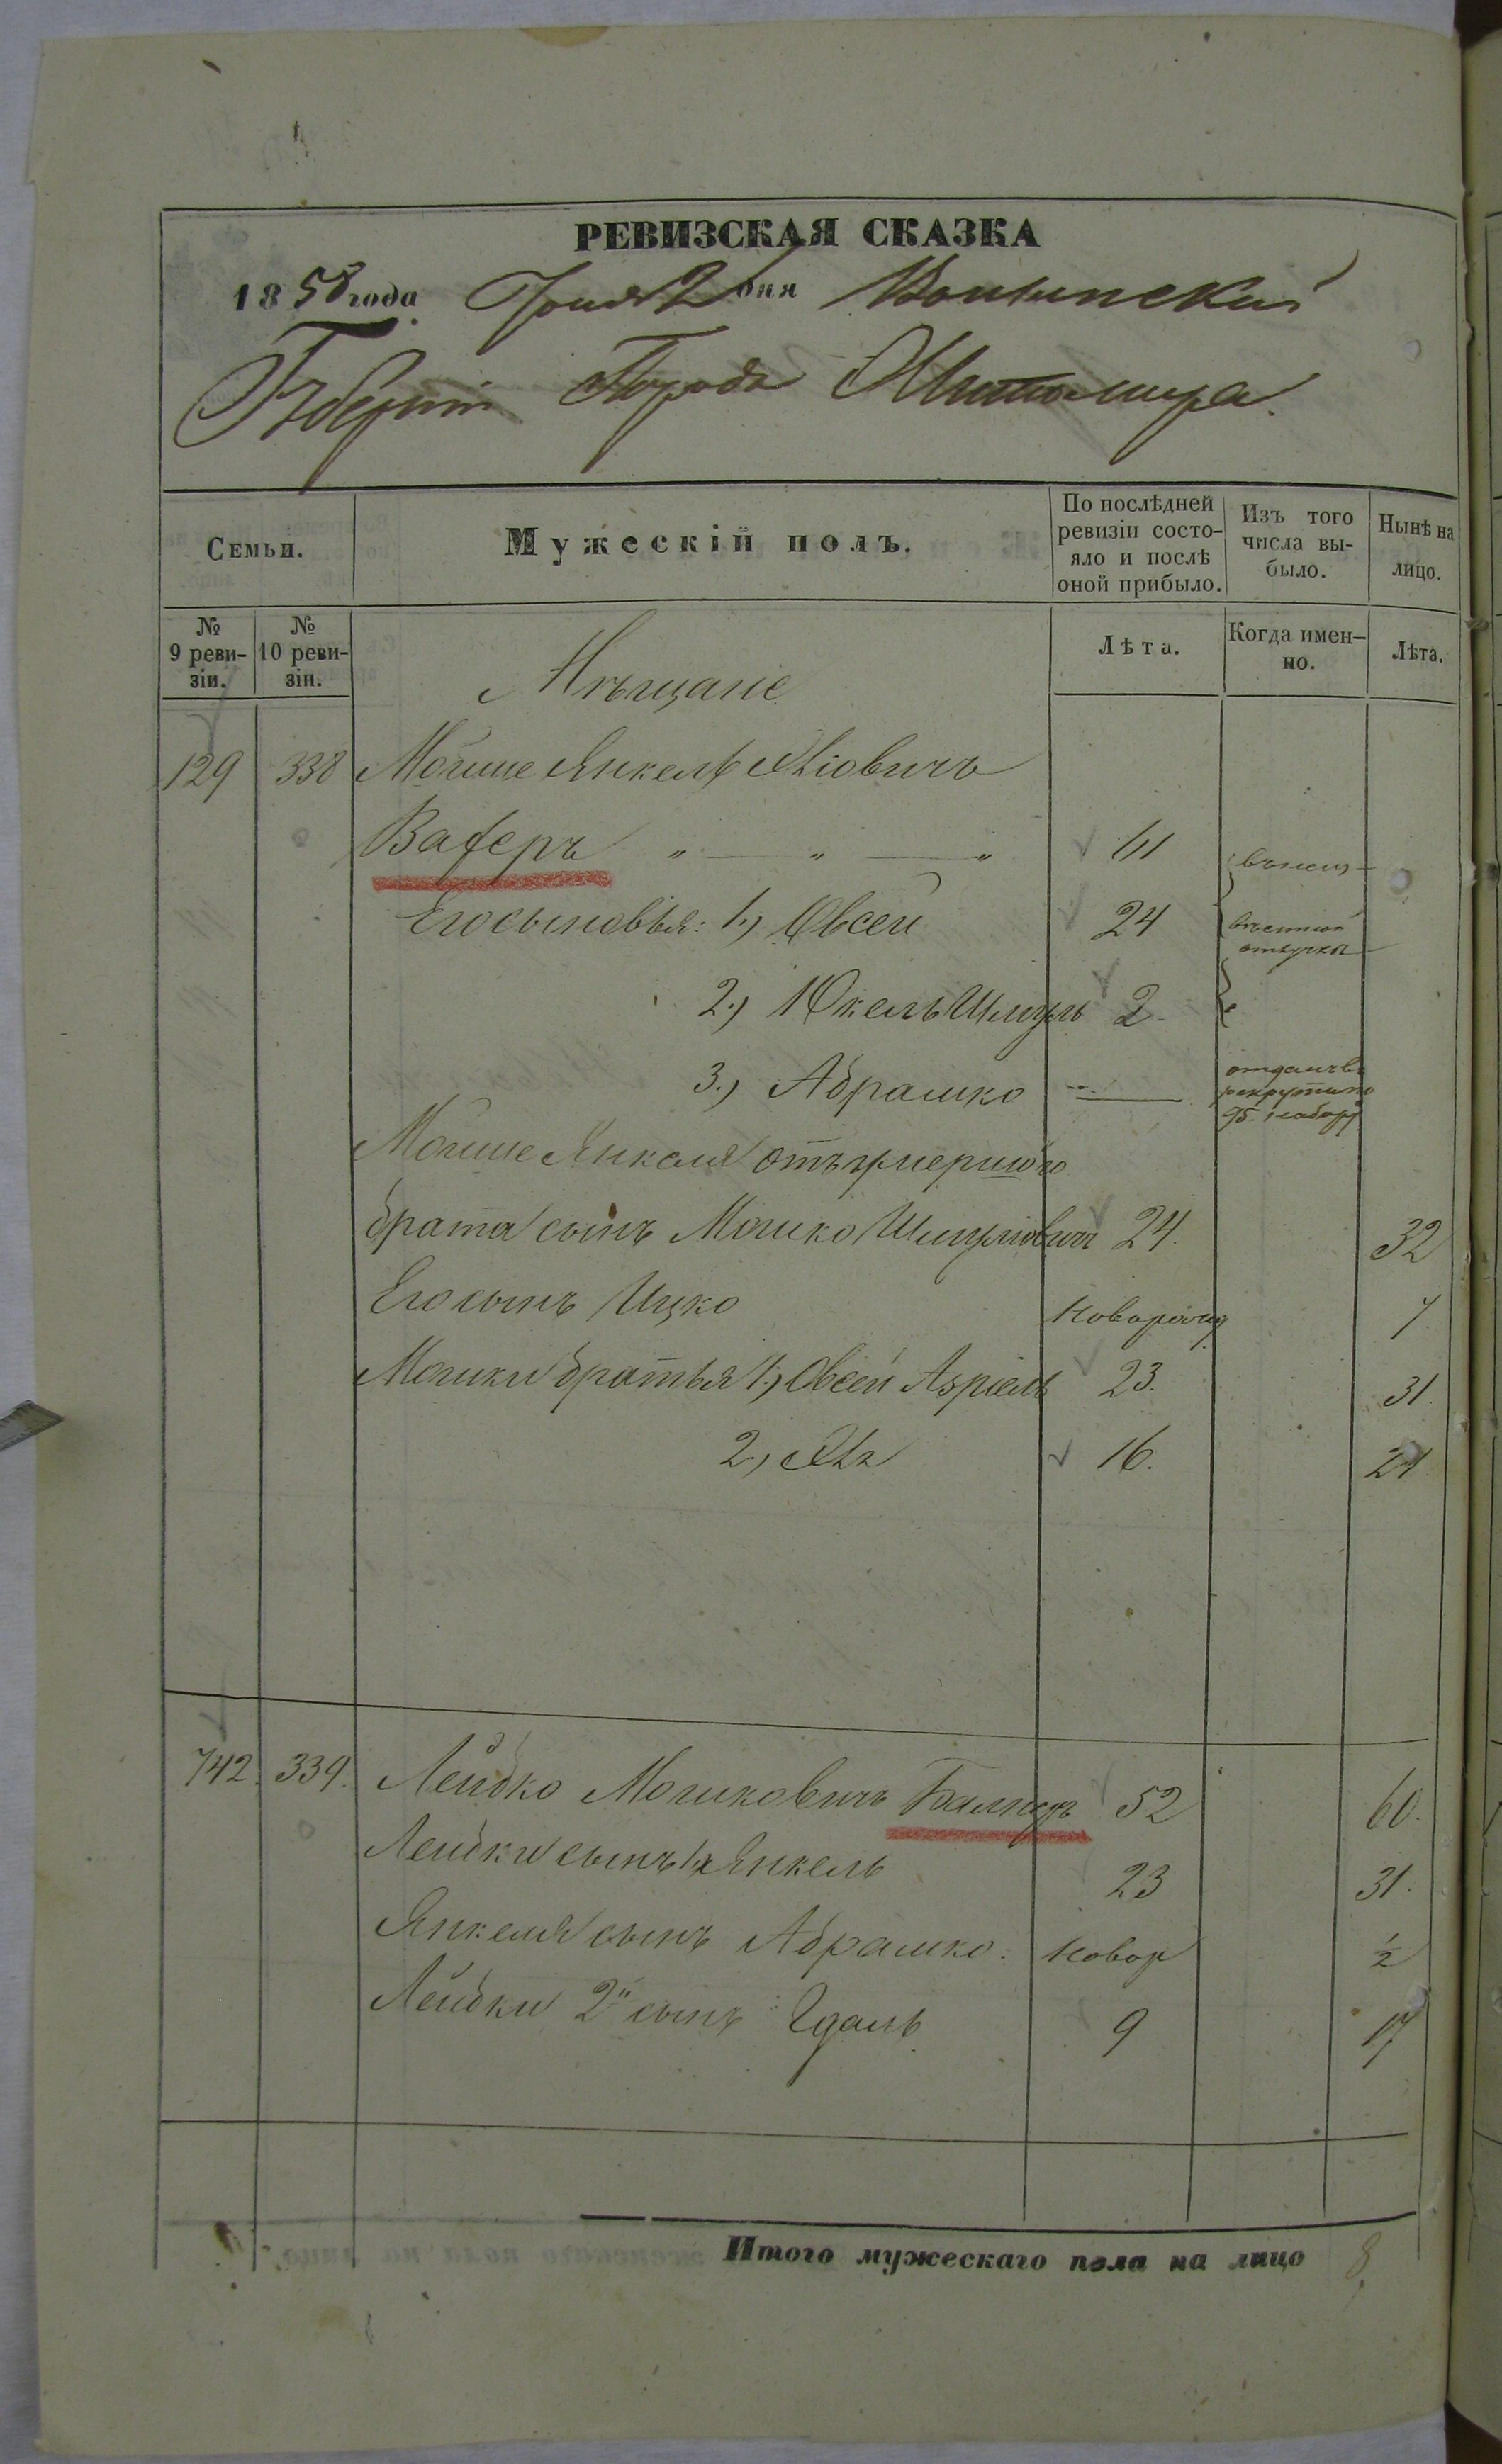 РЕВИЗСКАЯ СКАЗКА
1858 года Іюня 2 дня Волынской
Губерніи Города Житомира.
Семьи.
Мужескій полъ.
По послѣдней ревизіи состо-
яло и послѣ оной прибыло.
Изъ того числа вы-
было.
Нынѣ на лицо.
№ 9 реви-
зіи.
№ 10 реви-
зіи.
Лѣта.
Когда имен-
но.
Лѣта.
Мѣщане
129 338 Мошие Янкель
Ваферъ " — " — " 41
Его сыновья: 1.) Овсей 24
отлучки
2.) Юкель Шмуль 2
3.) Абрамко —
отданъ въ
рекруты по
95. набору
Мошие Янкеля отъ умершаго
брата сынъ Мошко Шмуліовичъ 24. 32
Его сынъ Ицко новорожд 7
Мошки братья 1.) Овсей Азріель 23. 31.
2.) 16. 24
742. 339. Лейбко Мошковичъ 52 60.
Лейбки сынъ 1й Янкель 23 31.
Янкеля сынъ Абрамко. новор ½
Лейбки 2й сынъ Гдаль 9 17
Итого мужескаго пола на лицо 8.